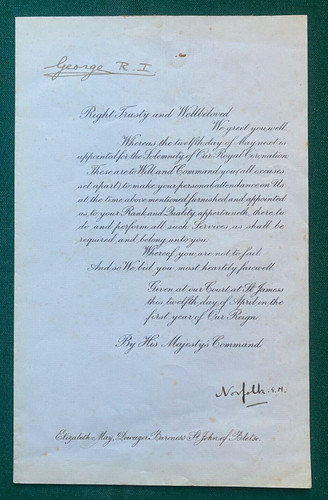 George R. I.
Right Trusty and Wellbeloved
We greet you well.
Whereas the twelfth day of May next is
appointed for the Solemnity of Our Royal Coronation
These are to Will and Command you (all excuses
set apart) to make your personal attendance on Us
at the time abovementioned furnished and appointed
as to your Rank and Quality appertaineth, there to
do and perform all such Services as shall be
required and belong unto you.
Whereof you are not to fail
And so We bid you most heartily farewell.
Given at our Court at St. James's
this twelfth day of April in the
first year of Our Reign
By His Majesty's Command.
Norfolk. E.M.
Elizabeth May, Dowager Baroness St John of Bletso.